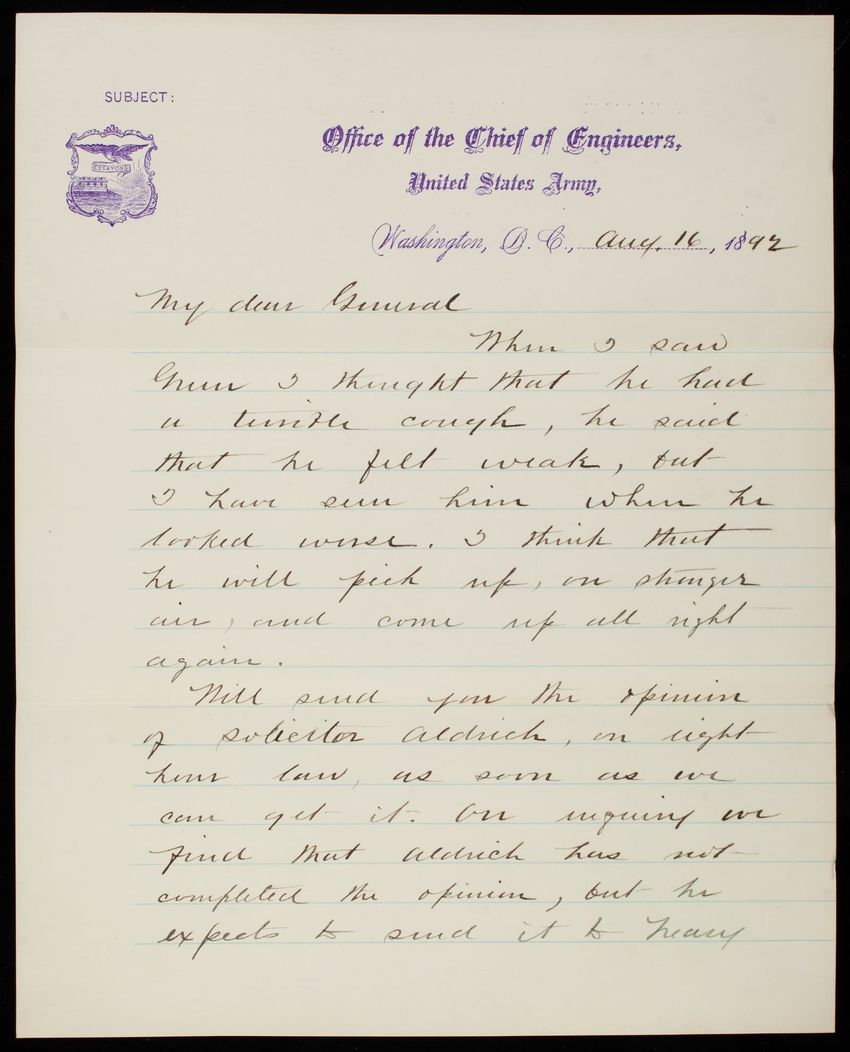 SUBJECT:
ESSAYONS
Office of the Chief of Engineers,
United States Army,
Washington, D. C., Aug. 16, 1892
My dear General
When I saw
Green I thought that he had
a terrible cough, he said
that he felt weak, but
I have seen him when he
looked worse. I think that
he will pick up, on stronger
air, and come up all right
again.
Will send you the opinion
of solicitor Aldrich, on eight
hour law, as soon as we
can get it. On inquiry we
find that Aldrich has not
completed the opinion, but he
expects to send it to